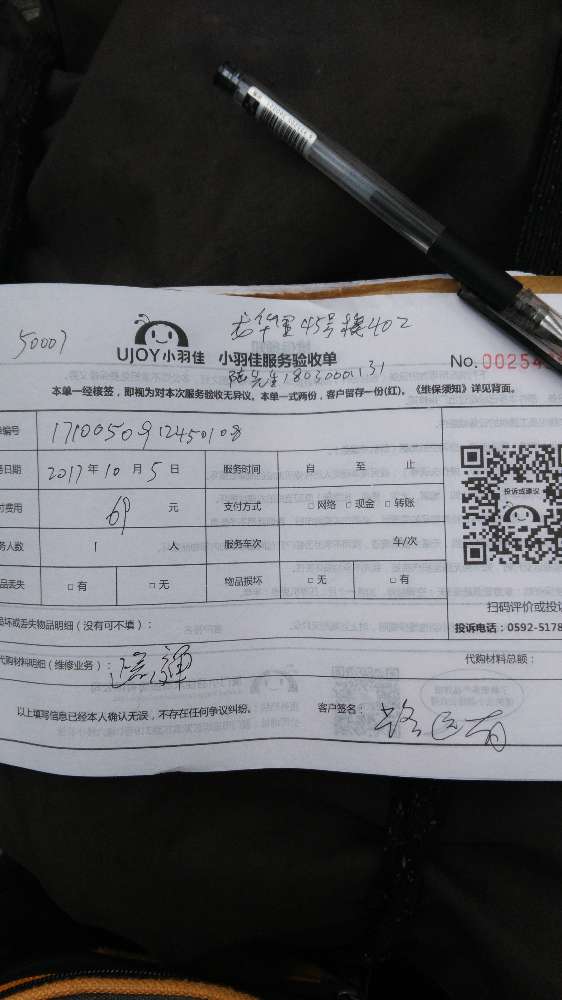 50007
45号楼402
UJOY小羽佳 小羽佳服务验收单
No. 00254
本单一经核签，即视为对本次服务验收无异议。本单一式两份，客户留存一份(红)。《维保须知》详见背面。
编号 1710050912450108
日期 2017年10月5日 服务时间 自 至 止
费用 69 元 支付方式 □网络 □现金 □转账
投诉或建议
人数 1 人 服务车次 车/次
品丢失 □有 □无 物品损坏 □无 □有
扫码评价或投
坏或丢失物品明细（没有可不填）：
投诉电话：0592-5178
代购材料明细（维修业务）： 疏通 代购材料总额：
以上填写信息已经本人确认无误，不存在任何争议纠纷。 客户签名：